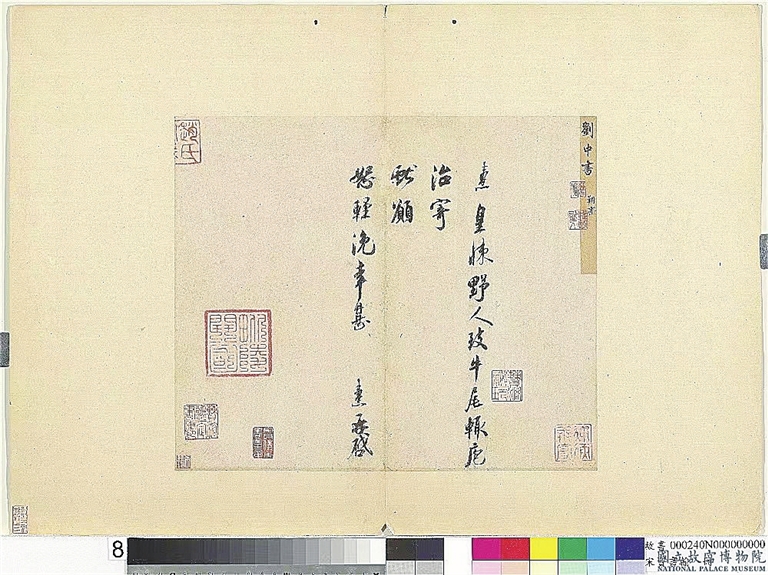 劉中書
燾皇悚野人致牛尾輒庖
治寄
獻願
恕輕浼幸甚 燾再啟
趙氏
8
000240N000000000
國立故宮博物院
NATIONAL PALACE MUSEUM